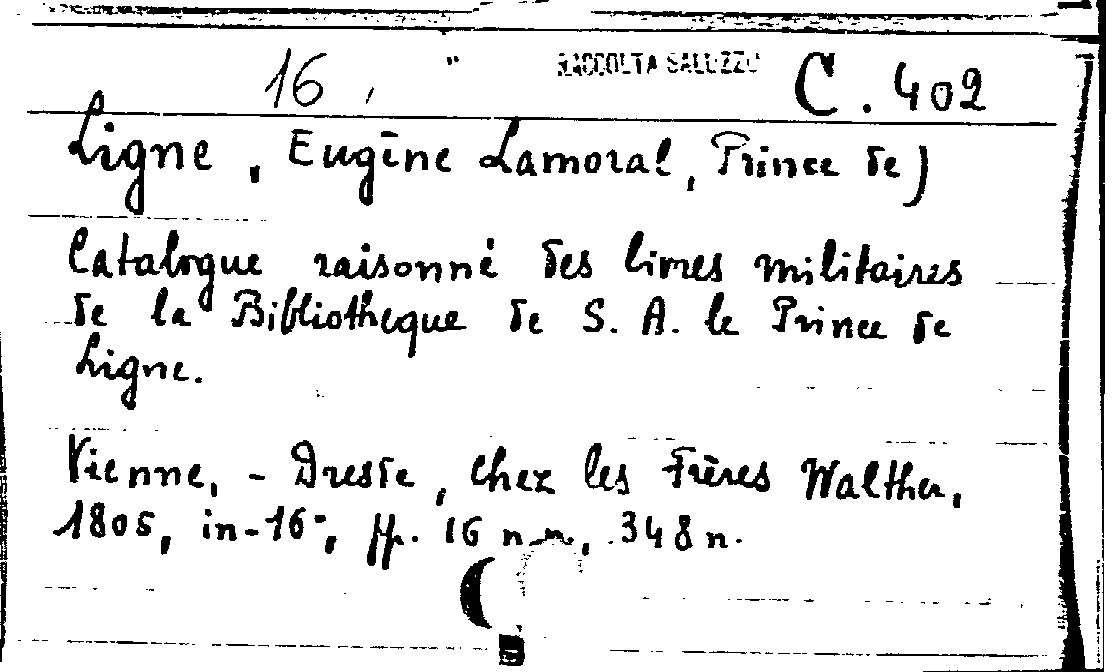 16, " RACCOLTA SALUZZO C. 402
Ligne, Eugène Lamoral, Prince de)
Catalogue raisonné des livres militaires
de la Bibliotheque de S. A. le Prince de
Ligne.
Vienne, - Dresde, chez les Frères Walther,
1805, in-16°, pp. 16 n.n., 348 n.